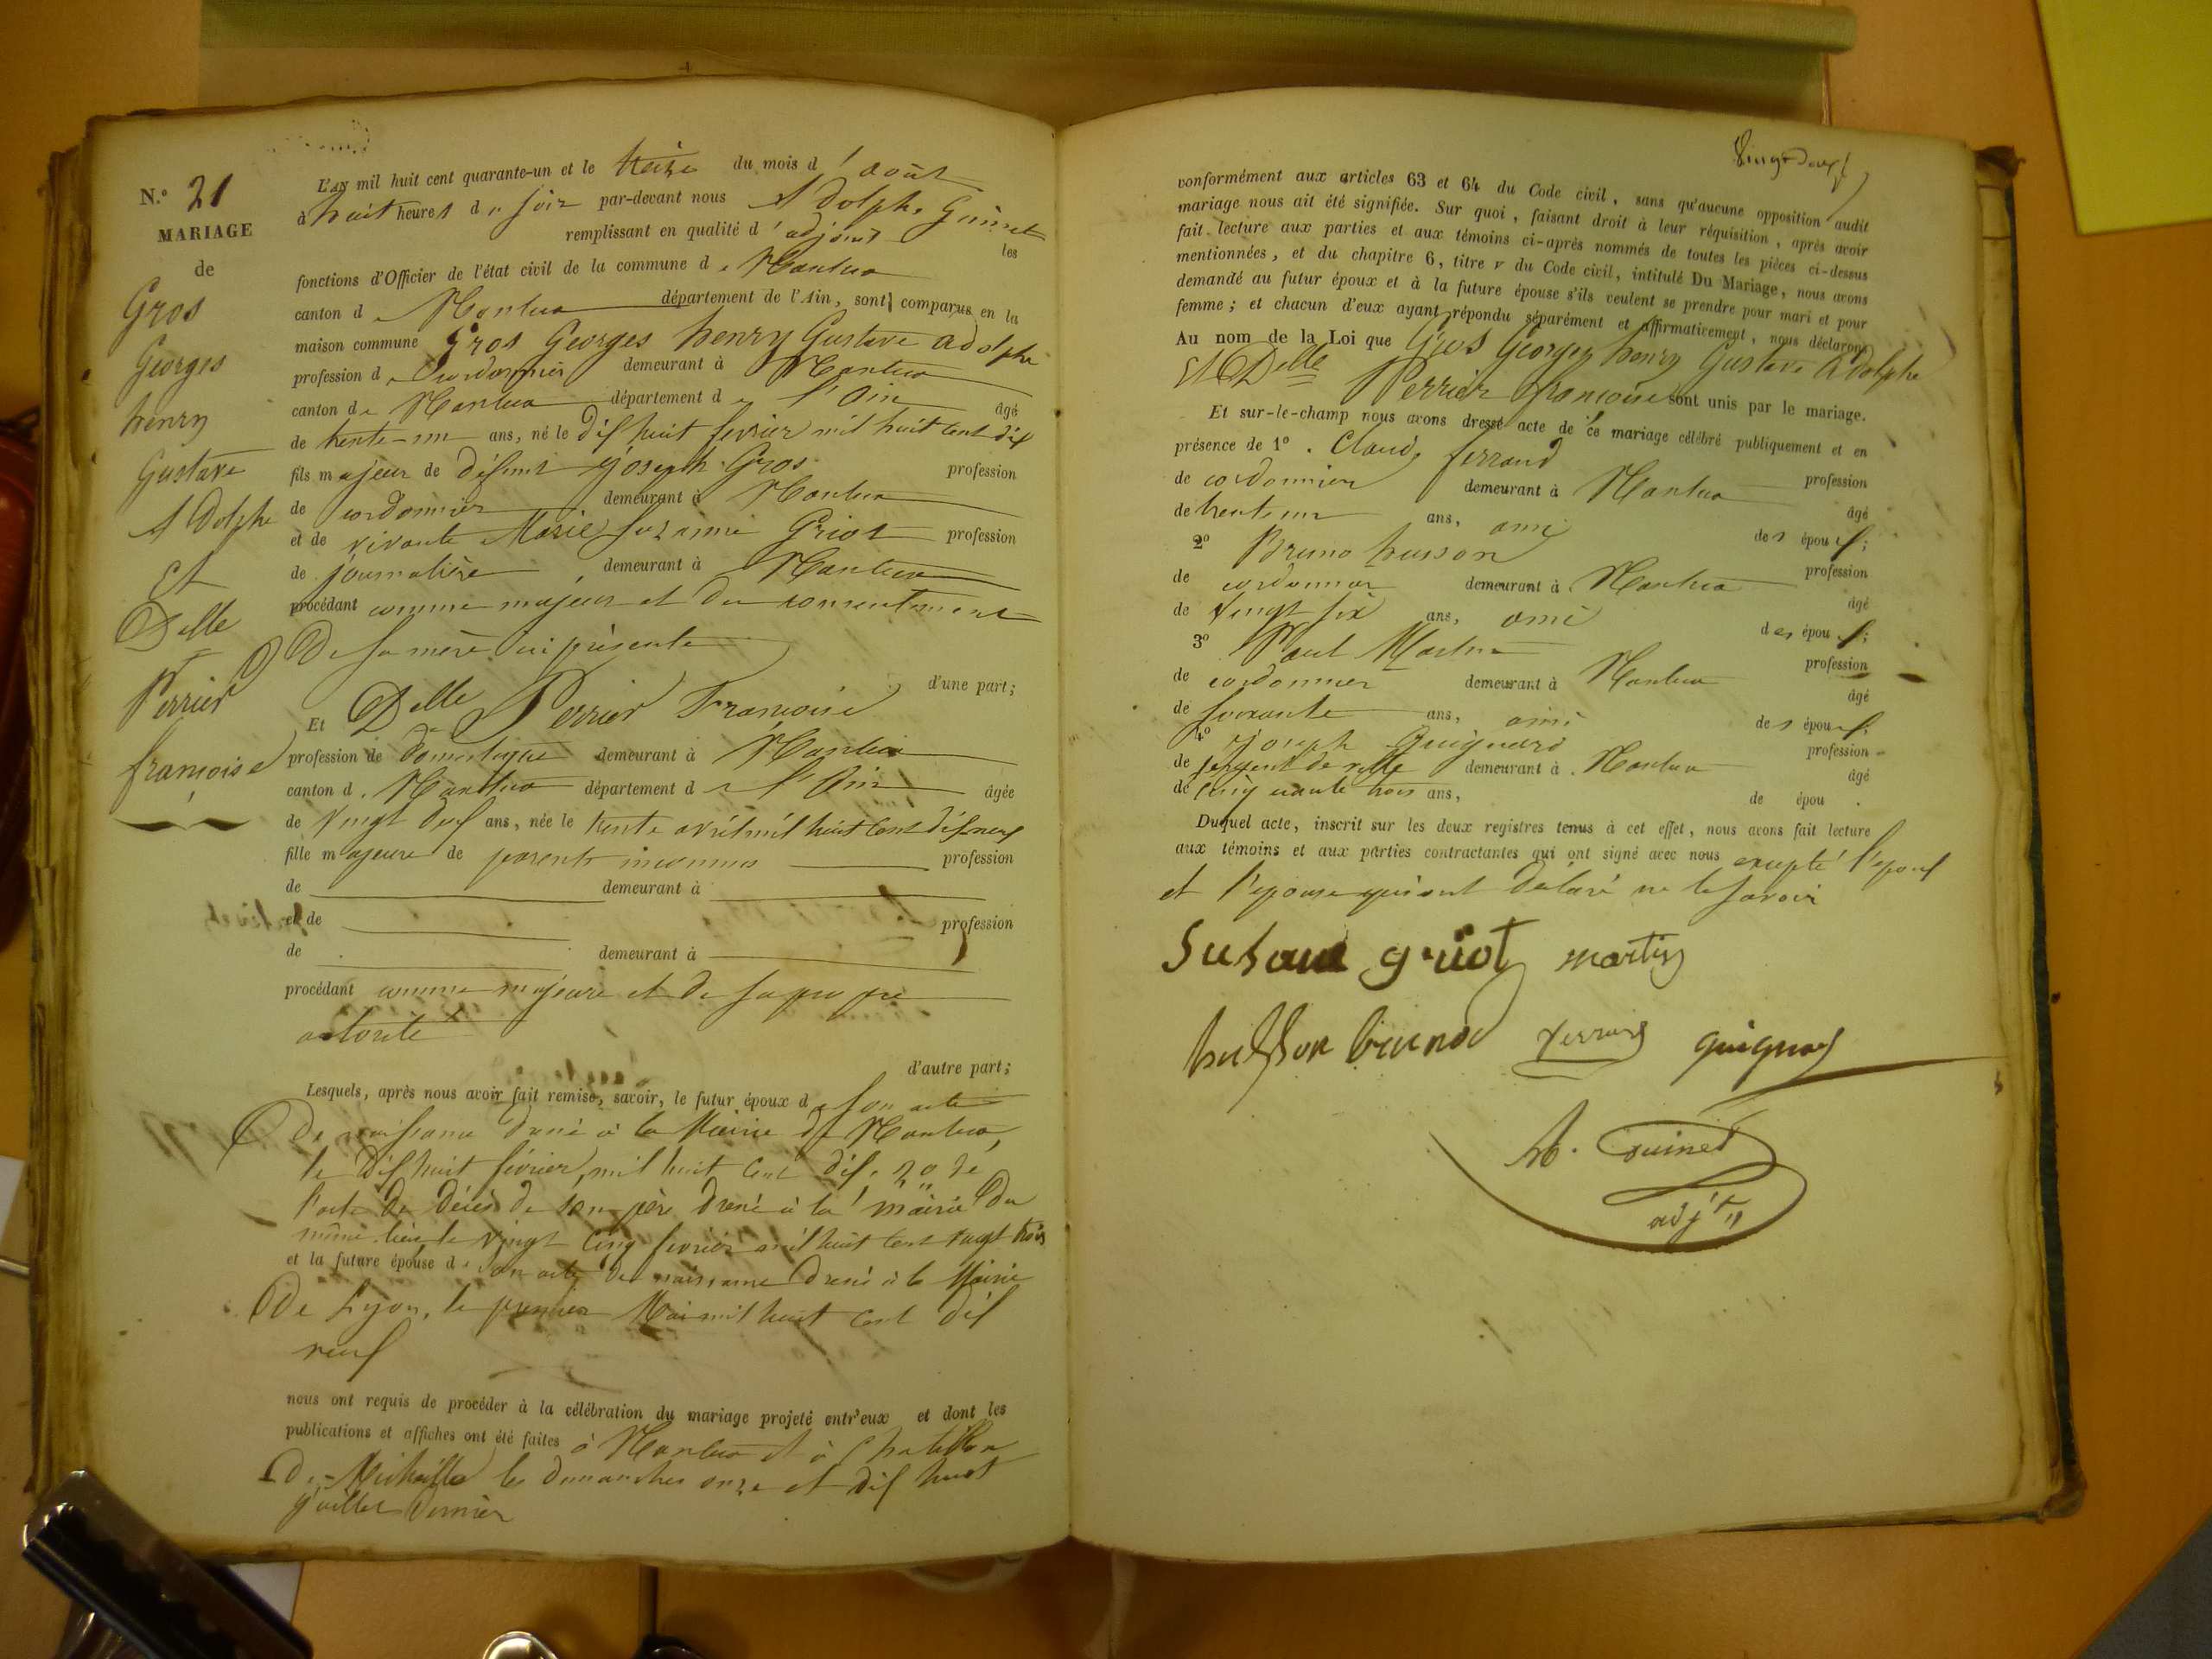 N.º 21
MARIAGE
de
Gros
Georges
henry
Gustave
Adolphe
Et
Delle
Perrier
françoise
L'an mil huit cent quarante-un et le treize du mois d'août
à huit heures du soir par-devant nous Adolphe Guinet
remplissant en qualité d'adjoint les
fonctions d'Officier de l'état civil de la commune de Nantua
canton de Nantua département de l'Ain, sont comparus en la
maison commune Gros Georges henry Gustave adolphe
profession de Cordonnier demeurant à Nantua
canton de Nantua département de l'Ain âgé
de trente-un ans, né le dix huit fevrier mil huit cent dix
fils majeur de défunt Joseph Gros profession
de cordonnier demeurant à Nantua
et de vivante Marie suzanne Griot profession
de journalière demeurant à Nantua
procédant comme majeur et du consentement
De sa mère ici présente
d'une part;
Et Delle Perrier Françoise
profession de domestique demeurant à Nantua
canton de Nantua département de l'Ain âgée
de Vingt deux ans, née le trente avril mil huit cent dix neuf
fille majeure de parents inconnus profession
de demeurant à
et de profession
de demeurant à
procédant comme majeure et de sa propre
autorité
d'autre part;
Lesquels, après nous avoir fait remise, savoir, le futur époux de son acte
De naissance dressé à la Mairie de Nantua,
le dix huit février mil huit cent dix.
l'acte de décès de son père dressé à la mairie du
même lieu le vingt cinq fevrier mil huit cent vingt trois
et la future épouse de son acte de naissance dressé à la Mairie
De Lyon, le premier Mai mil huit cent dix
neuf
nous ont requis de procéder à la célébration du mariage projeté entr'eux et dont les
publications et affiches ont été faites à Nantua et à Chatillon
De Michaille les dimanches onze et dix huit
juillet dernier
Vingt deux
conformément aux articles 63 et 64 du Code civil, sans qu'aucune opposition audit
mariage nous ait été signifiée. Sur quoi, faisant droit à leur réquisition, après avoir
fait lecture aux parties et aux témoins ci-après nommés de toutes les pièces ci-dessus
mentionnées, et du chapitre 6, titre v du Code civil, intitulé Du Mariage, nous avons
demandé au futur époux et à la future épouse s'ils veulent se prendre pour mari et pour
femme; et chacun d'eux ayant répondu séparément et affirmativement, nous déclarons
Au nom de la Loi que Gros Georges henry Gustave Adolphe
Et Delle Perrier françoise sont unis par le mariage.
Et sur-le-champ nous avons dressé acte de ce mariage célébré publiquement et en
présence de 1º. Claude ferrand profession
de cordonnier demeurant à Nantua âgé
de trente un ans, ami des époux;
2º Bruno husson profession
de cordonnier demeurant à Nantua âgé
de Vingt six ans, ami des époux;
3º Paul Martin profession
de cordonnier demeurant à Nantua âgé
de soixante ans, ami des époux;
4º Joseph Guignard profession
de sergent de ville demeurant à Nantua âgé
de Cinquante trois ans, de épou .
Duquel acte, inscrit sur les deux registres tenus à cet effet, nous avons fait lecture
aux témoins et aux parties contractantes qui ont signé avec nous excepté l'epoux
et l'epouse qui ont déclaré ne le savoir
susane griot martin
husson bruno ferrand guignard
Ad. Guinet
adjt